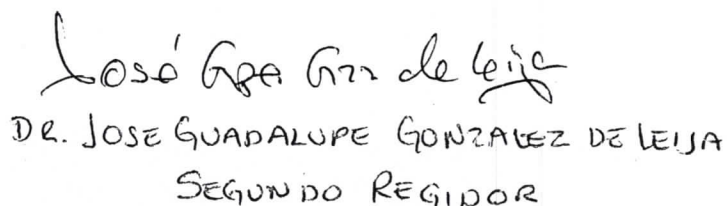 José Gpe Gzz de Leija
DR. JOSE GUADALUPE GONZALEZ DE LEIJA
SEGUNDO REGIDOR